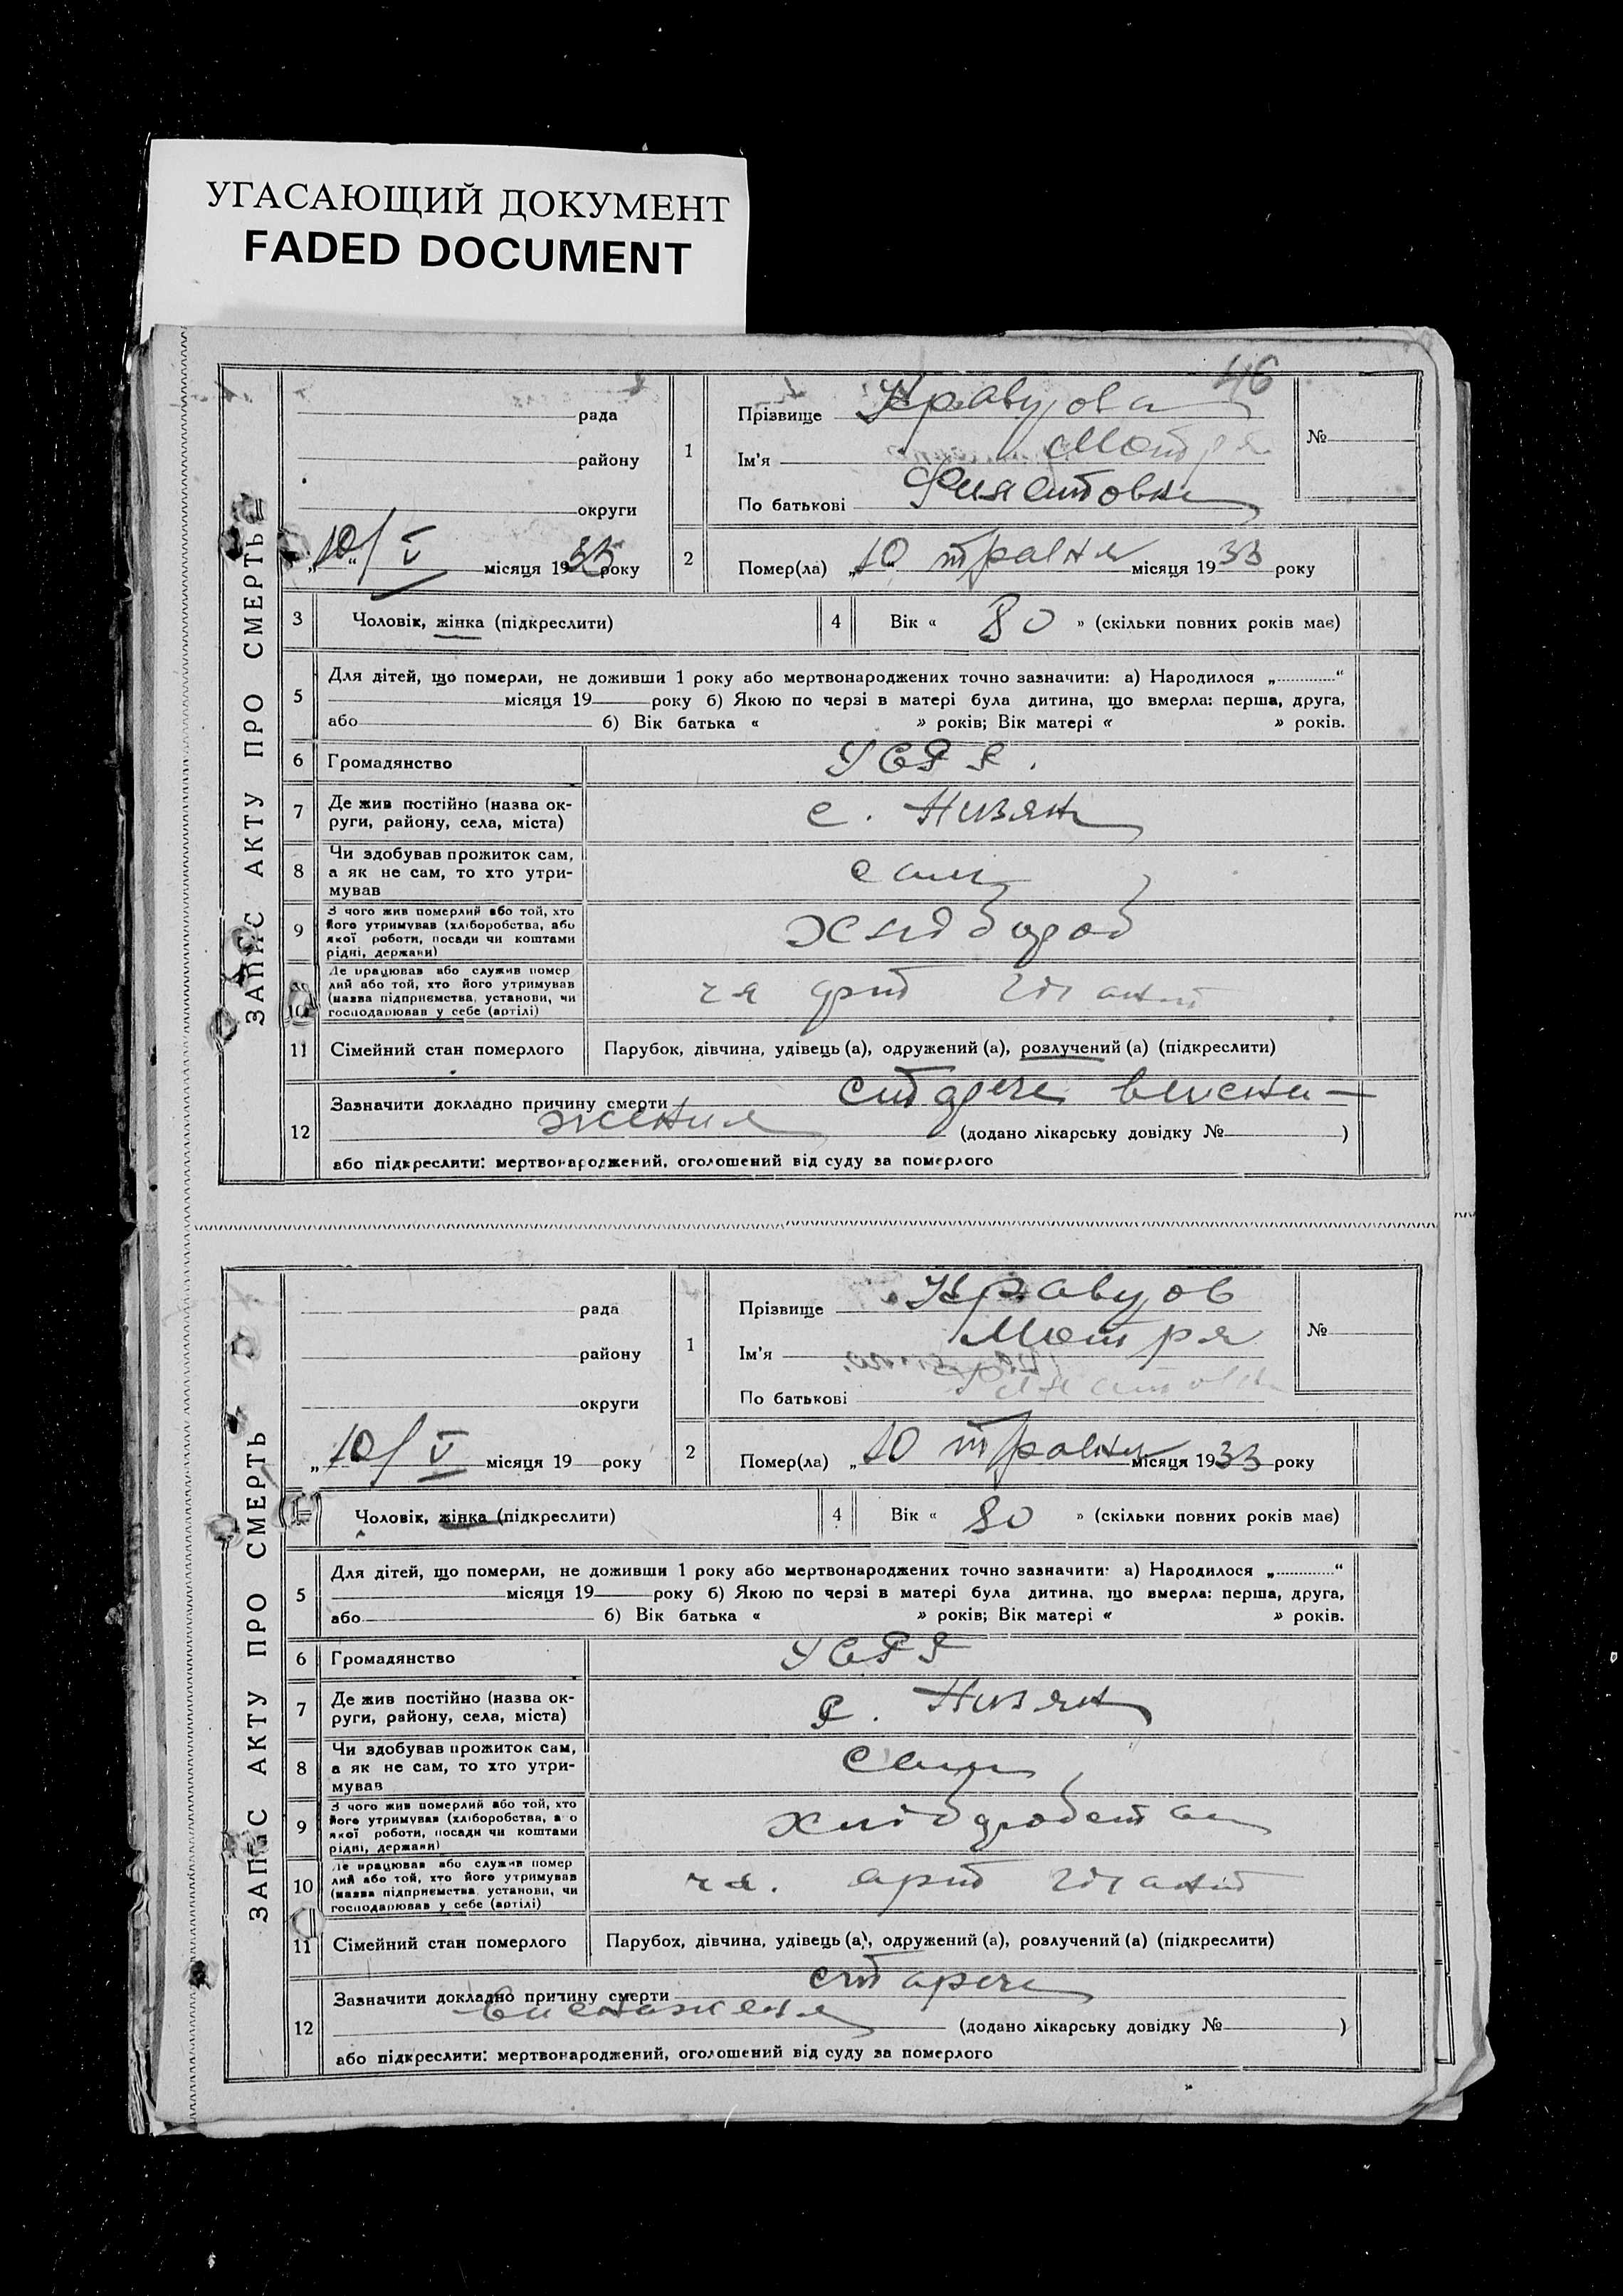 УГАСАЮЩИЙ ДОКУМЕНТ
FADED DOCUMENT
46
ЗАПИС АКТУ ПРО СМЕРТЬ
рада
району
округи
„10/V“ місяця 1933 року
1
Прізвище Кравцова
Ім'я Мотря
По батькові
№
2
Помер(ла) „10“ травня місяця 1933 року
3 Чоловік, жінка (підкреслити)
4 Вік « 80 » (скільки повних років має)
5
Для дітей, що померли, не доживши 1 року або мертвонароджених точно зазначити: а) Народилося „............“
місяця 19 року б) Якою по черзі в матері була дитина, що вмерла: перша, друга,
або б) Вік батька « » років; Вік матері « » років.
6 Громадянство УСРР.
7 Де жив постійно (назва ок-
руги, району, села, міста)
с. Низяни
8 Чи здобував прожиток сам,
а як не сам, то хто утри-
мував
сам
9 З чого жив померлий або той, хто
його утримував (хліборобства, або
якої роботи, посади чи коштами
рідні, держави)
хлібороб
10 Де працював або служив помер
лий або той, хто його утримував
(назва підприємства, установи, чи
господарював у себе (артілі)
чл арт
11 Сімейний стан померлого Парубок, дівчина, удівець (а), одружений (а), розлучений (а) (підкреслити)
12
Зазначити докладно причину смерти старече висна-
ження (додано лікарську довідку № )
або підкреслити: мертвонароджений, оголошений від суду за померлого
ЗАПИС АКТУ ПРО СМЕРТЬ
рада
району
округи
„10/V місяця 19 року
1
Прізвище Кравцов
Ім'я Мотря
По батькові
№
2
Помер(ла) „10 травня місяця 1933 року
Чоловік, жінка (підкреслити)
4 Вік « 80 » (скільки повних років має)
5
Для дітей, що померли, не доживши 1 року або мертвонароджених точно зазначити: а) Народилося „............“
місяця 19 року б) Якою по черзі в матері була дитина, що вмерла: перша, друга,
або б) Вік батька « » років; Вік матері « » років.
6 Громадянство УСРР
7 Де жив постійно (назва ок-
руги, району, села, міста)
с. Низян
8 Чи здобував прожиток сам,
а як не сам, то хто утри-
мував
сам
9 З чого жив померлий або той, хто
його утримував (хліборобства, або
якої роботи, посади чи коштами
рідні, держави)
хліборобства
10 Де працював або служив помер
лий або той, хто його утримував
(назва підприємства, установи, чи
господарював у себе (артілі)
чл. арт
11 Сімейний стан померлого Парубок, дівчина, удівець (а), одружений (а), розлучений (а) (підкреслити)
12
Зазначити докладно причину смерти старече
виснаження (додано лікарську довідку № )
або підкреслити: мертвонароджений, оголошений від суду за померлого